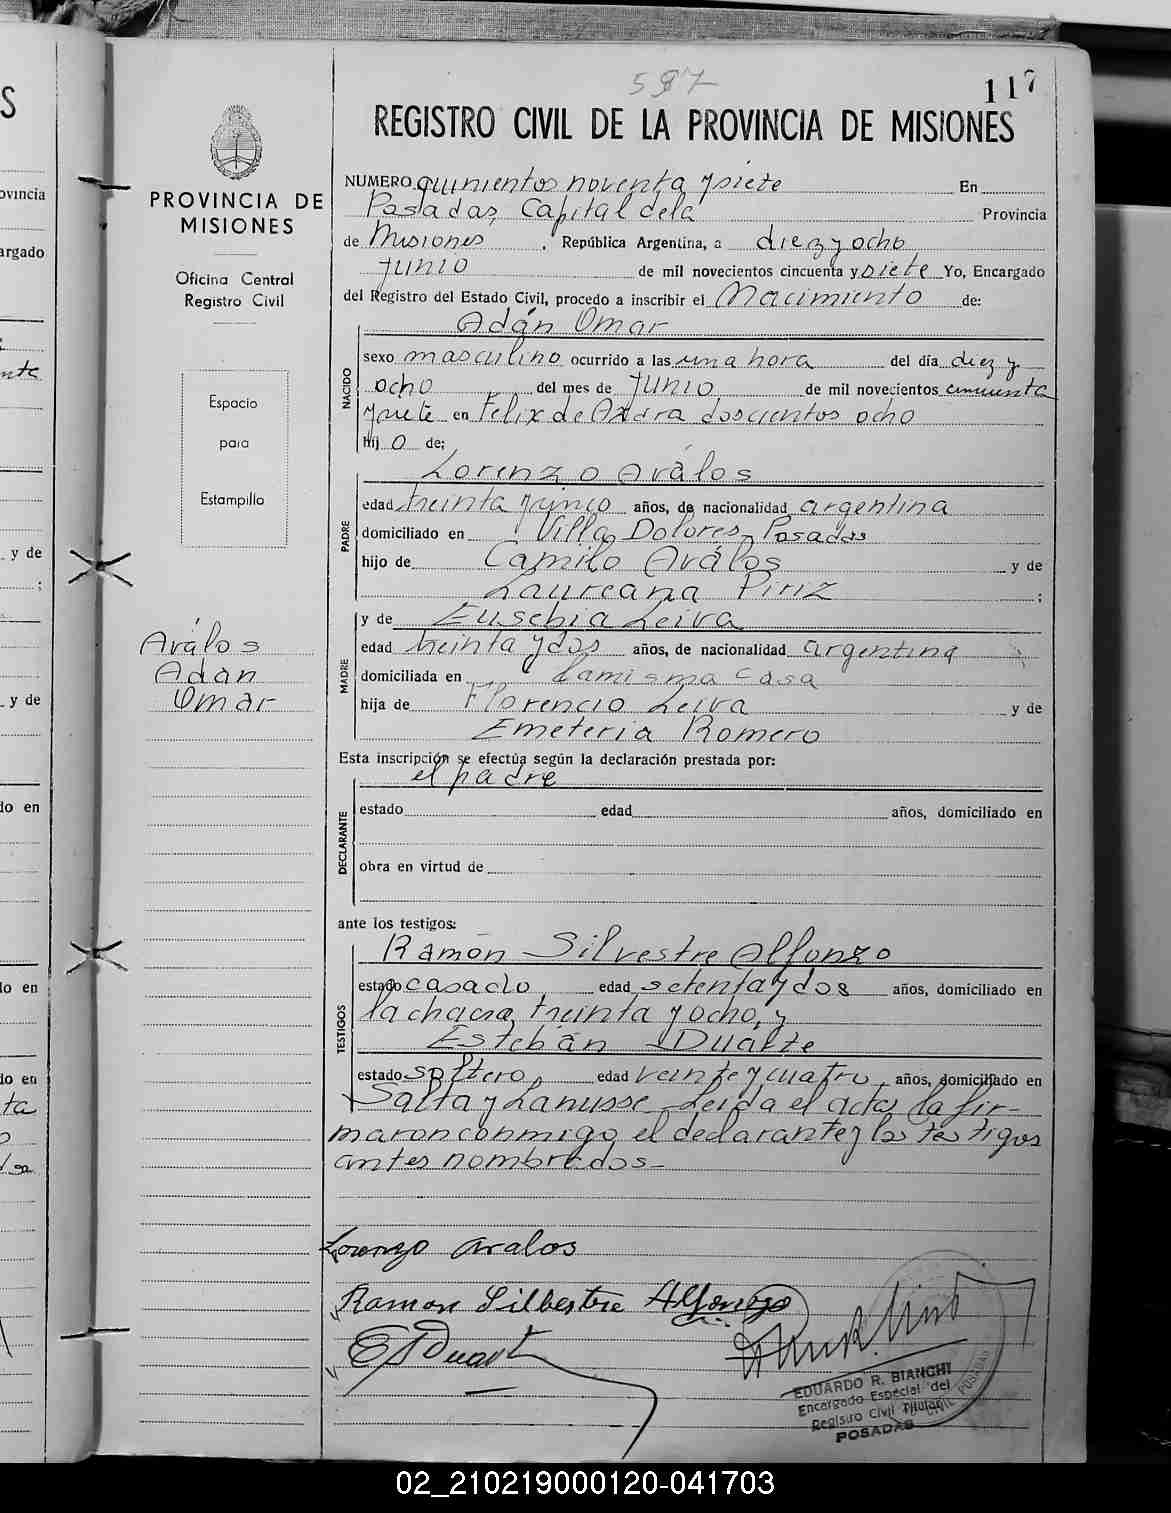 597
117
REGISTRO CIVIL DE LA PROVINCIA DE MISIONES
PROVINCIA DE
MISIONES
Oficina Central
Registro Civil
Espacio
para
Estampilla
Aválos
Adán
Omar
NUMERO quinientos noventa y siete En
Posadas, Capital de la Provincia
de Misiones, República Argentina, a diez y ocho
junio de mil novecientos cincuenta y siete Yo, Encargado
del Registro del Estado Civil, procedo a inscribir el Nacimiento de:
NACIDO
Adán Omar
sexo masculino ocurrido a las una hora del día diez y
ocho del mes de junio de mil novecientos cincuenta
y siete en Felix de Azara doscientos ocho
hijo de;
PADRE
Lorenzo Aválos
edad treinta y cinco años, de nacionalidad argentina
domiciliado en Villa Dolores, Posadas
hijo de Camilo Aválos y de
Laureana Piriz ;
MADRE
y de Eusebia Leiva
edad treinta y dos años, de nacionalidad argentina
domiciliada en la misma casa
hija de Florencio Leiva y de
Emeteria Romero
Esta inscripción se efectúa según la declaración prestada por:
DECLARANTE
el padre
estado edad años, domiciliado en
obra en virtud de
ante los testigos:
TESTIGOS
Ramón Silvestre Alfonzo
estado casado edad setenta y dos años, domiciliado en
la chacra treinta y ocho, y
Esteban Duarte
estado soltero edad veinte y cuatro años, domiciliado en
Salta y Lanusse Leida el acta, la fir-
maron conmigo el declarante y los testigos
antes nombrados-
Lorenzo avalos
Ramon Silbestre Alfonzo
E Duarte
EDUARDO R. BIANCHI
Encargado Especial del
Registro Civil Titular
POSADAS
CIVIL POSADAS
S
ovincia
argado
y de
;
y de
do en
do en
do en
ta
02_210219000120-041703